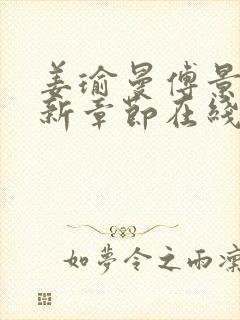 姜瑜曼傅景
新章節在綫
如夢令之雨凜